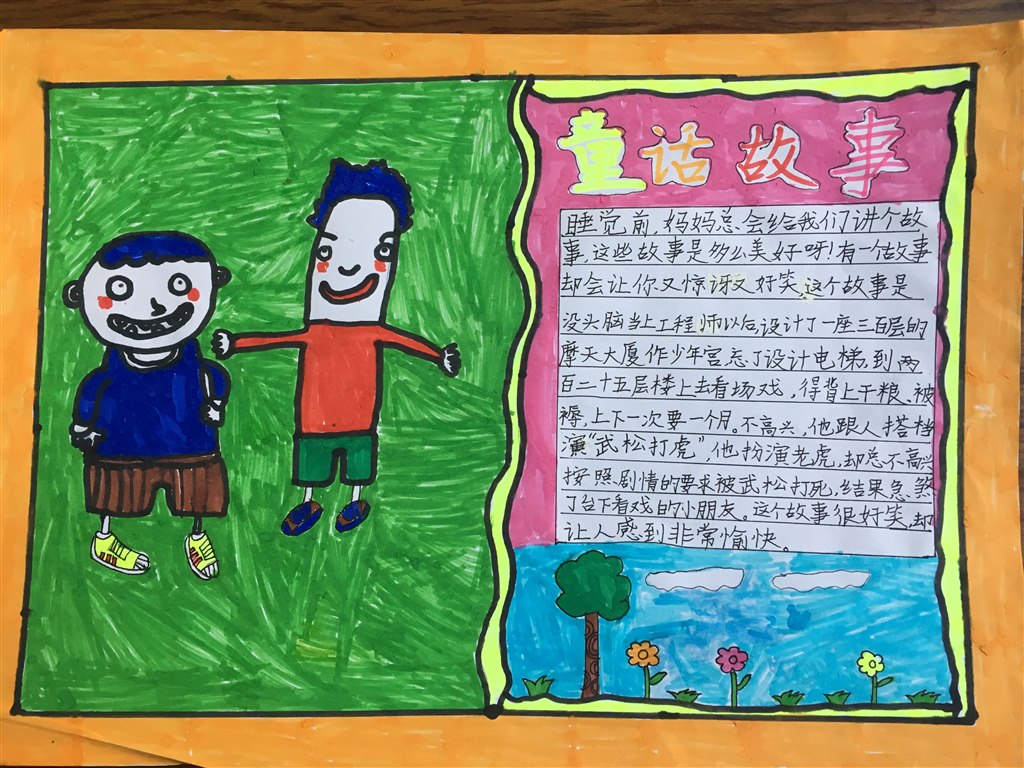 童话故事
睡觉前,妈妈总会给我们讲个故
事,这些故事是多么美好呀!有一个故事
却会让你又惊讶又好笑,这个故事是
没头脑当上工程师以后,设计了一座三百层的
摩天大厦作少年宫忘了设计电梯,到两
百二十五层楼上去看场戏,得背上干粮、被
褥,上下一次要一个月。不高兴,他跟人搭档
演“武松打虎”,他扮演老虎,却总不高兴
按照剧情的要求被武松打死,结果急煞
了台下看戏的小朋友。这个故事很好笑,却
让人感到非常愉快。